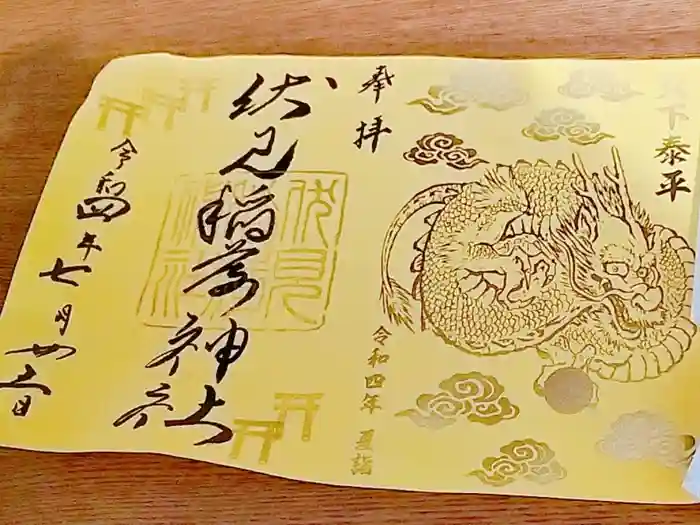 天下泰平
奉拝
令和四年 夏詣
伏見稲荷神社
伏見
令和四年七月廿三日